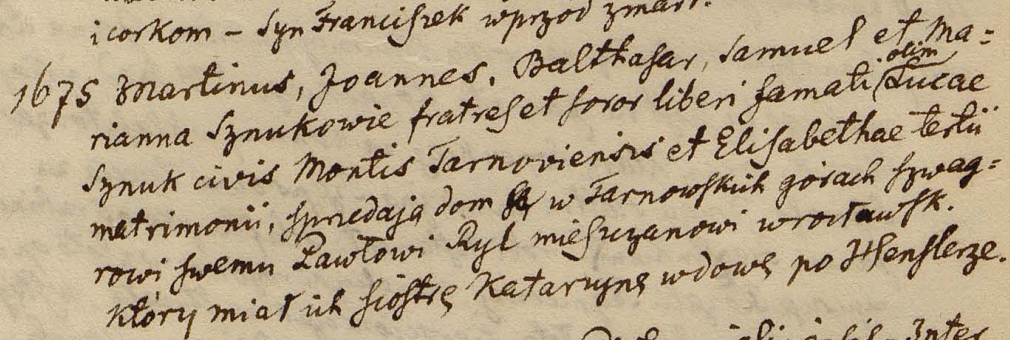 i corkom – Syn Franciszek wprzod zmarł.
1675 Martinus, Joannes, Balthasar, Samuel et Ma=
rianna Sznukowie fratres et soror liberi famati olim Lucae
Sznuk civis Montis Tarnoviensis et Elisabethae tertii
matrimonii, sprzedają dom w Tarnowskich gorach szwag=
rowi swemu Pawłowi Ryl mieszczanowi wrocławsk.
który miał ich siostrę Katarzynę wdowę po Henslerze.